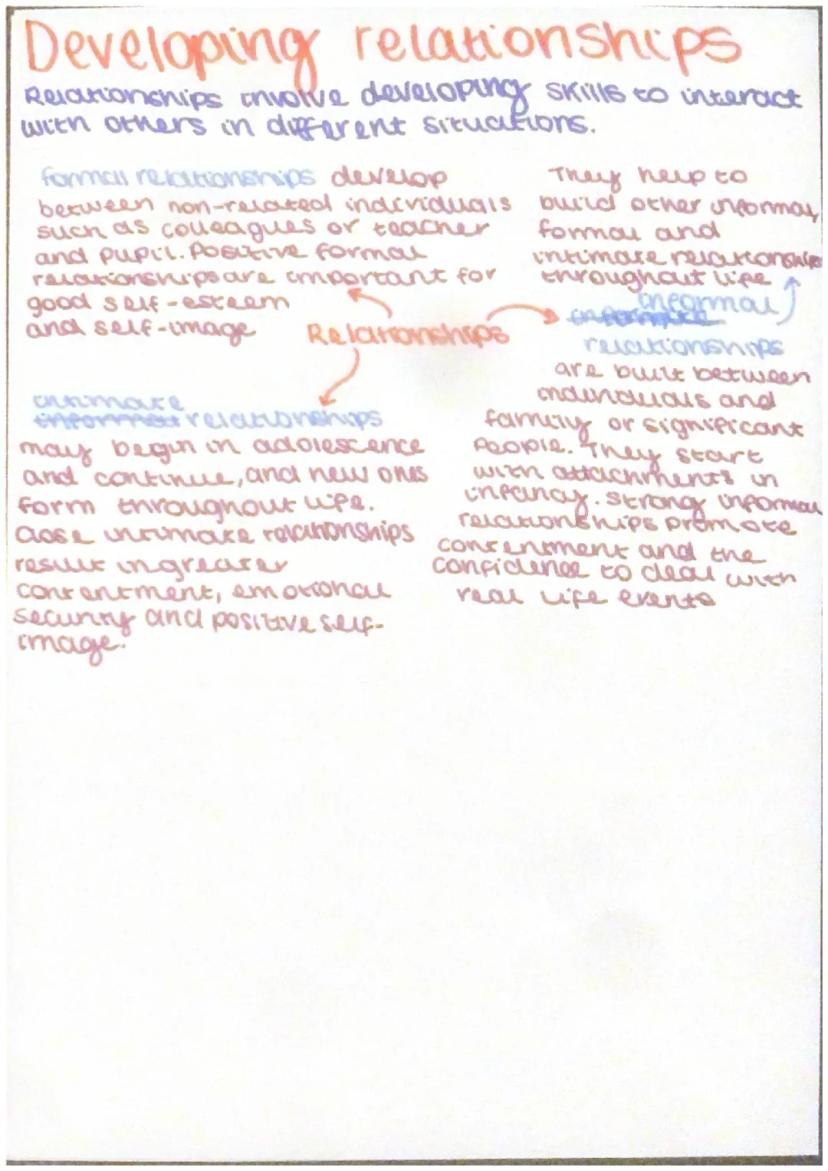 Developing relationships
Relationships involve developing skills to interact
with others in different situations.
formal relationships develop
between non-related individuals
such as colleagues or teacher
and pupil. Positive formal
relationships are important for
good self-esteem
and self-image
They help to
build other informal,
formal and
intimate relationships
throughout life
Relationships
informal
relationships
are built between
individuals and
family or significant
people. They start
with attachments in
infancy. Strong informal
relationships promote
contentment and the
confidence to deal with
real life events
intimate
informal relationships
may begin in adolescence
and continue, and new ones
form throughout life.
Close intimate relationships
result in greater
contentment, emotional
security and positive self-
image.